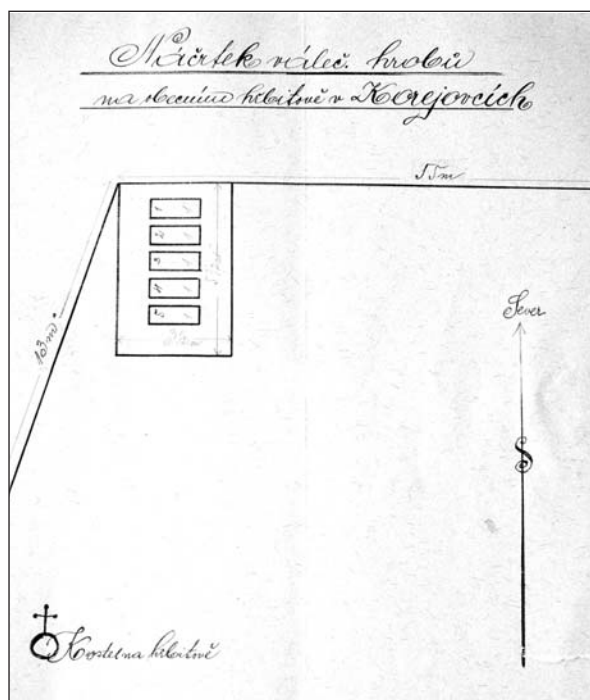 Náčrtek váleč. hrobů
na obecním hřbitově v Korejovcích
55m
1 1
2 1
3 1
4 1
5 1
13 m
Sever
S
Kostel na hřbitově